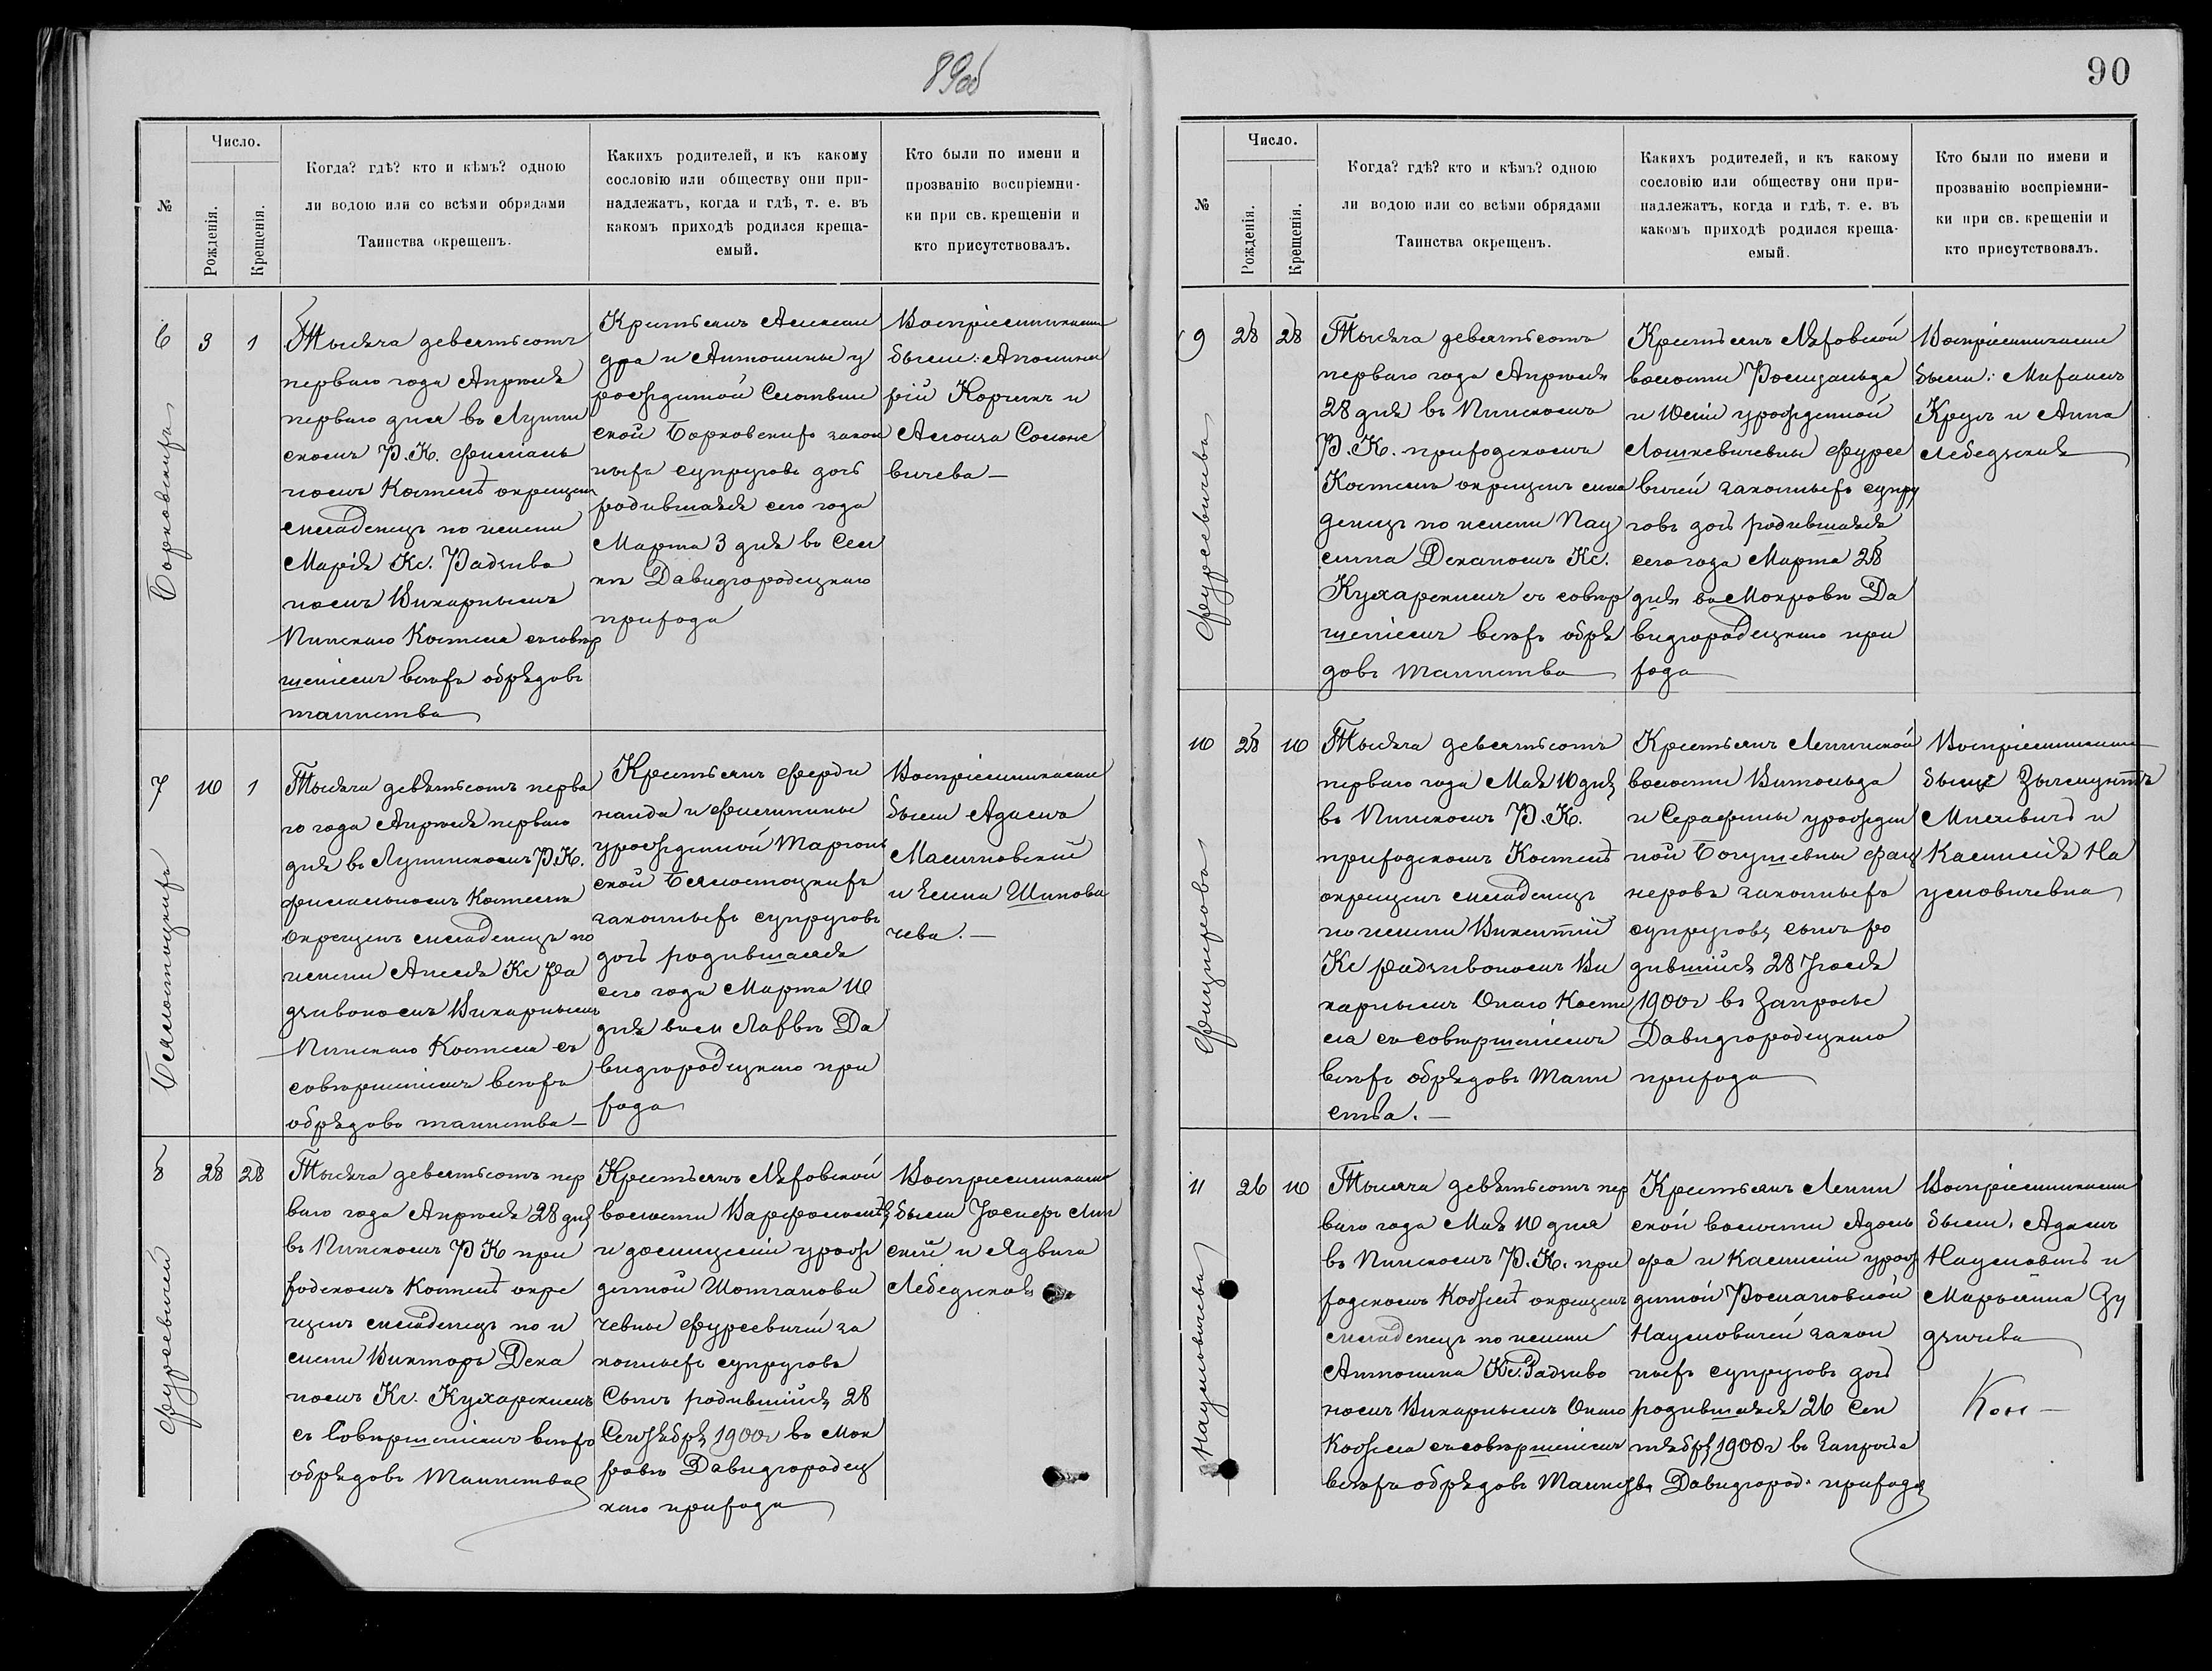 89об
№
Число.
Рожденія.
Крещенія.
Когда? гдѣ? кто и кѣмъ? одною
ли водою или со всѣми обрядами
Таинства окрещенъ.
Какихъ родителей, и къ какому
сословію или обществу они при-
надлежатъ, когда и гдѣ, т. е. въ
какомъ приходѣ родился креща-
емый.
Кто были по имени и
прозванію воспріемни-
ки при св. крещеніи и
кто присутствовалъ.
6
3
1
Борковскихъ
Тысяча девятьсотъ
перваго года Апрѣля
перваго дня въ Лунин
скомъ Р.К. филіаль
номъ Костелѣ окрещенъ
младенецъ по имени
Марія Кс. Радзиво
номъ Викарнымъ
Пинскаго Костела съ совѣр
шеніемъ всѣхъ обрядовъ
таинства
Крестьянъ Алексан
дра и Антонины у
рожденной
ской Борковскихъ закон
ныхъ супруговъ дочь
родившаяся сего года
Марта 3 дня въ
Давидгородецкаго
прихода
Воспріемниками
были: Аполина
рій Корчикъ и
Алоиза Солоне
вичева —
7
10
1
Бялостоцкихъ
Тысяча девятьсотъ перва
го года Апрѣля перваго
дня въ Лунинскомъ Р.К.
филіальномъ Костелѣ
окрещенъ младенецъ по
имени Анеля Кс Ра
дзивономъ Викарнымъ
Пинскаго Костела съ
совѣршеніемъ всѣхъ
обрядовъ таинства —
Крестьянъ Ферди
нанда и Филипины
урожденной
ской Бялостоцкихъ
законныхъ супруговъ
дочь родившаяся
сего года Марта 10
дня въ им Лахвѣ Да
видгородецкаго при
хода
Воспріемниками
были Адамъ
и Елена Шипова
чева. —
8
28
28
Фурсевичей
Тысяча девятьсотъ пер
ваго года Апрѣля 28 дня
въ Пинскомъ Р К при
ходскомъ Костелѣ окре
щенъ младенецъ по и
мени Викторъ Дека
номъ Кс. Кухарскимъ
съ совѣршеніемъ всѣхъ
обрядовъ Таинства
Крестьянъ Ляховской
волости Варфоломѣя
и Доміцеліи урож
денной
чевны Фурсевичей за
конныхъ супруговъ
Сынъ родившійся 28
Сентября 1900г въ Мок
ровѣ Давидгородец
каго прихода
Воспріемниками
были Іосифъ Лип
скій и Ядвига
Лебедзская
90
№
Число.
Рожденія.
Крещенія.
Когда? гдѣ? кто и кѣмъ? одною
ли водою или со всѣми обрядами
Таинства окрещенъ.
Какихъ родителей, и къ какому
сословію или обществу они при-
надлежатъ, когда и гдѣ, т. е. въ
какомъ приходѣ родился креща-
емый.
Кто были по имени и
прозванію воспріемни-
ки при св. крещеніи и
кто присутствовалъ.
9
28
28
Фурсевичева
Тысяча девятьсотъ
перваго года Апрѣля
28 дня въ Пинскомъ
Р.К. приходскомъ
Костелѣ окрещенъ мла
денецъ по имени Пау
лина Деканомъ Кс.
Кухарскимъ съ совѣр
шеніемъ всѣхъ обря
довъ таинства
Крестьянъ Ляховской
волости Ромуальда
и Юліи урожденной
Лошкевичевны Фурсе
вичей законныхъ супру
говъ дочь родившаяся
сего года Марта 28
дня въ Мокровѣ Да
видгородецкаго при
хода
Воспріемниками
были: Михаилъ
Круль и Анна
Лебедзская
10
28
10
Фицнерова
Тысяча девятьсотъ
перваго года Мая 10 дня
въ Пинскомъ Р.К.
приходскомъ Костелѣ
окрещенъ младенецъ
по имени Викентій
Кс Радзивономъ Ви
карнымъ Онаго Косте
ла съ совѣршеніемъ
всѣхъ обрядовъ Таин
ства. —
Крестьянъ Ленинской
волости Витольда
и Серафины урожден
ной Богушевны Фиц
неровъ законныхъ
супруговъ сынъ ро
дившійся 28 Іюля
1900г въ Запросье
Давидгородецкаго
прихода
Воспріемниками
были Зыгмунтъ
Милевичъ и
Камилія На
умовичевна
11
26
10
Наумовичева
Тысяча девятьсотъ пер
ваго года Мая 10 дня
въ Пинскомъ Р.К. при
ходскомъ Костелѣ окрещенъ
младенецъ по имени
Антонина Кс. Радзиво
номъ Викарнымъ Онаго
Костела съ совѣршеніемъ
всѣхъ обрядовъ Таинства
Крестьянъ Ленин
ской волости Адоль
фа и Камиліи урож
денной Романовской
Наумовичей закон
ныхъ супруговъ дочь
родившаяся 26 Сен
тября 1900г въ Запросье
Давидгород. прихода
Воспріемниками
были. Адамъ
Наумовичъ и
Марьянна Ду
дзичева